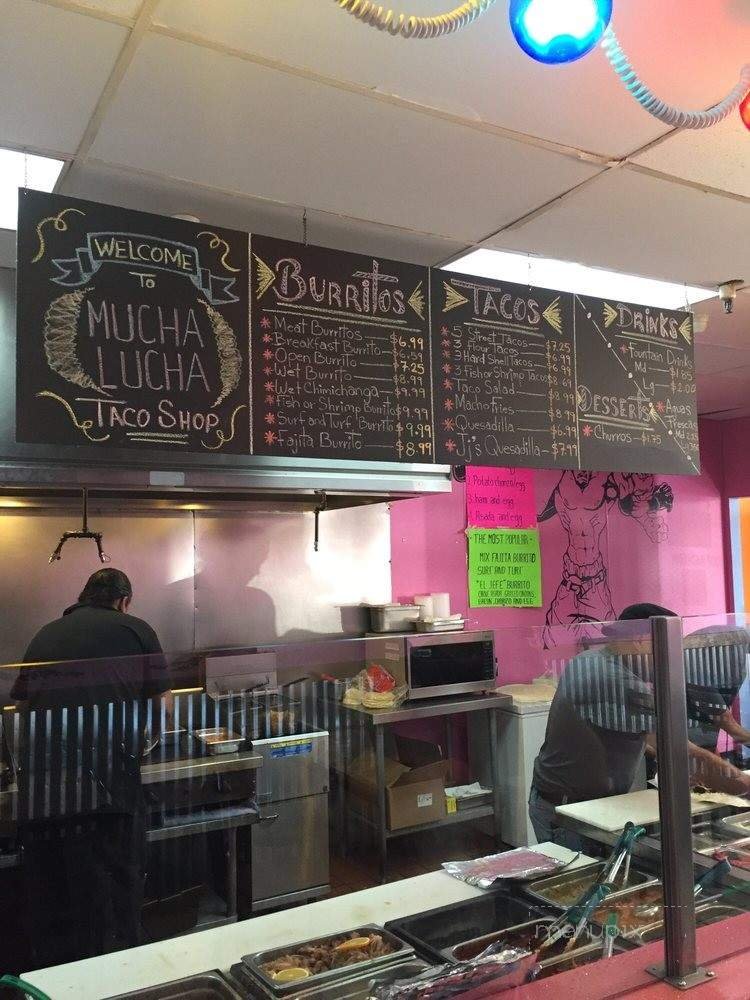 WELCOME
To
MUCHA
LUCHA
TACO SHOP
BURRITOS
* Meat Burritos $6.99
* Breakfast Burrito $6.59
* Open Burrito $7.25
* Wet Burrito $8.99
* Wet Chimichanga $9.99
* Fish or Shrimp Burrito $9.99
* Surf and Turf Burrito $9.99
* Fajita Burrito $8.99
TACOS
* 5 Street Tacos $7.25
* 3 Flour Tacos $6.99
* 3 Hard Shell Tacos $6.99
* 3 Fish or Shrimp Tacos $8.69
* Taco Salad $8.99
* Macho Fries $8.79
* Quesadilla $6.99
* Jj's Quesadilla $7.99
DRINKS
* Fountain Drinks
Md $1.85
Lg $2.00
* Aguas
Frescas
Md
DESSERTS
* Churros $1.75
2. Potato chorizo/egg
3. ham and egg
4. Asada and egg
- THE MOST POPULAR -
MIX FAJITA BURRITO
SURF AND TURF
"EL JEFE" BURRITO
BACON, CHORIZO AND EGG
menupix